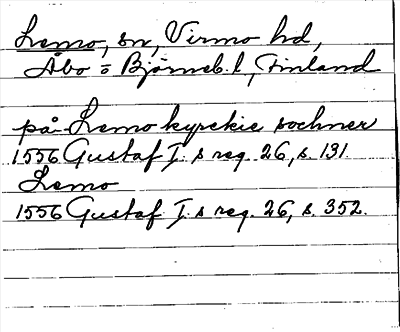 Lemo, sn, Virmo hd,
Åbo = Björneb. l, Finland
på Lemo kyrckie sochner
1556 Gustaf I. s reg. 26, s. 131.
Lemo
1556 Gustaf I. s reg. 26, s. 352.